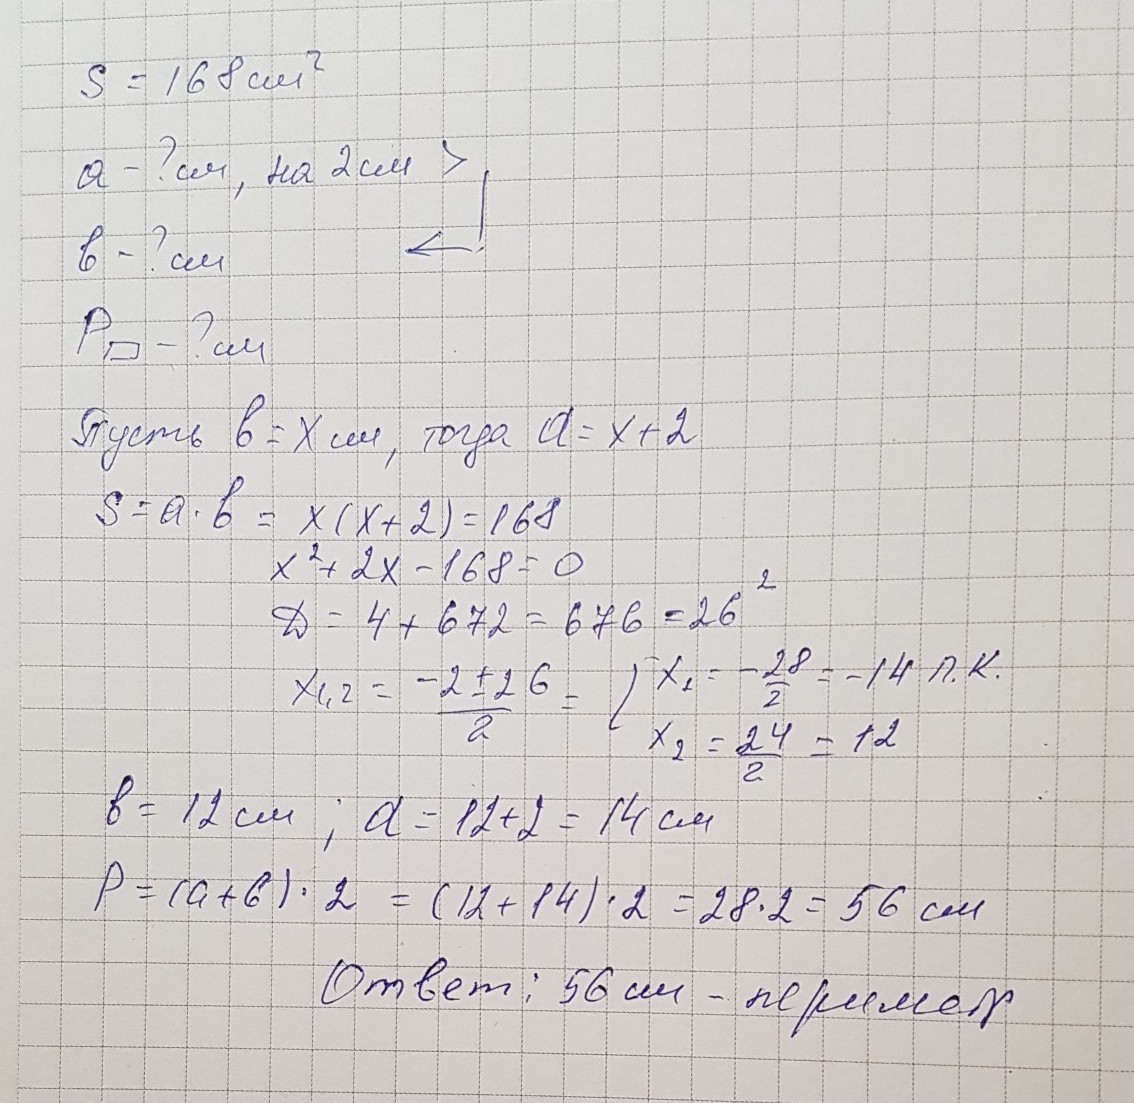 S = 168 см²
a - ? см, на 2 см >
в - ? см
P▭ - ? см
Пусть в = x см, тогда a = x + 2
S = a · в = x(x + 2) = 168
x² + 2x - 168 = 0
D = 4 + 672 = 676 = 26²
x1,2 = (-2 ± 26)/2 = [ x1 = -28/2 = -14 п.к.
x2 = 24/2 = 12
в = 12 см ; a = 12 + 2 = 14 см
P = (a + в) · 2 = (12 + 14) · 2 = 28 · 2 = 56 см
Ответ: 56 см - периметр